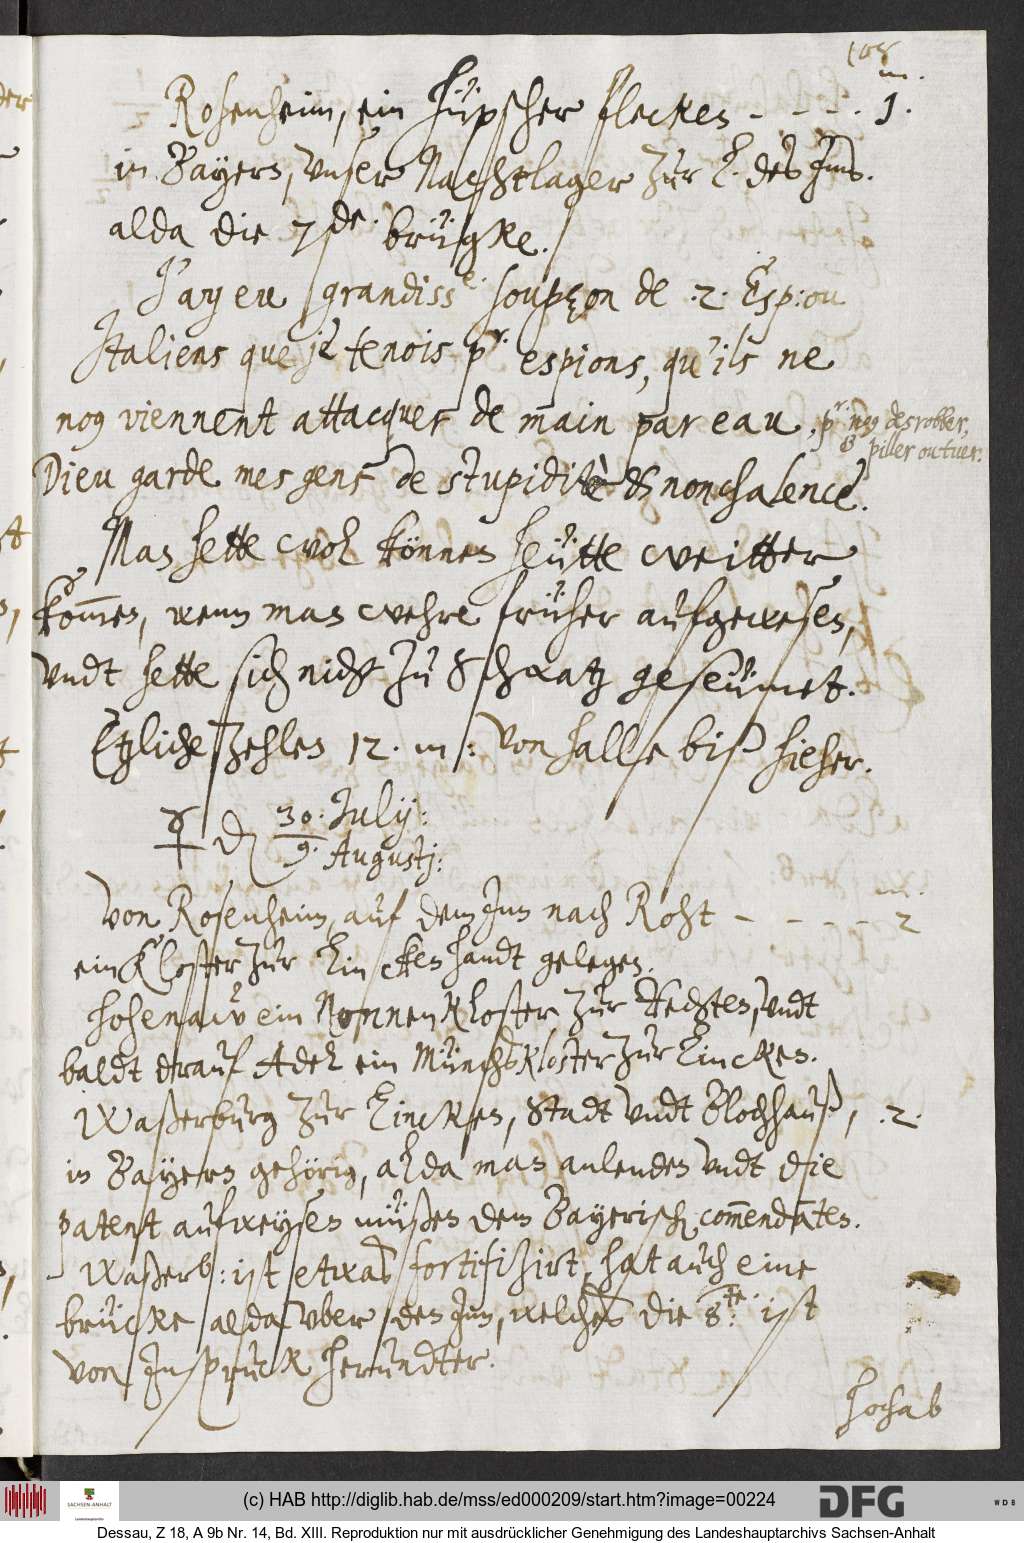 108
m.
Rosenheim, ein hüpscher flecken - - - . 1.
in Bayern, vnser Nachtlager zur l. des Jnns.
alda die 7de. brügke.
J'ay eu grandiss.e soupçon de .2. Esp: ou
Italiens que je tenois pr. espions, qu'ils ne
nous viennent attacquer de main par eau, pr. nous desrobber,
& piller ou tuer.
Dieu garde mes gens de stupidité & nonchalence.
Man hette wol können heütte weitter
kommen, wenn man wehre früher aufgewesen,
vndt hette sich nicht zu Schwatz geseümet.
Etzliche zehlen 12. m: von Halle biß hieher.
♀ den 30. July:
9. Augustj:
m.
Von Rosenheim, auf dem Jnn nach Roht - - - - 2
ein Kloster zur lincken handt gelegen.
Hohenaw ein Nonnenkloster zur Rechten, vndt
baldt drauf Adel ein Münchskloster zur lincken.
Waßerburg zur lincken, Stadt vndt Blochhauß, .2.
in Bayern gehörig, alda man anlenden vndt die
patent aufweysen müßen dem Bayerisch. commendanten.
Waßerb: ist etwas fortifizirt, hat auch eine
brücke alda vber den Jnn, welches die 8te: ist
von Jnspruck herundter.
Hochab
(c) HAB http://diglib.hab.de/mss/ed000209/start.htm?image=00224
SACHSEN-ANHALT
DFG
WDB
Dessau, Z 18, A 9b Nr. 14, Bd. XIII. Reproduktion nur mit ausdrücklicher Genehmigung des Landeshauptarchivs Sachsen-Anhalt